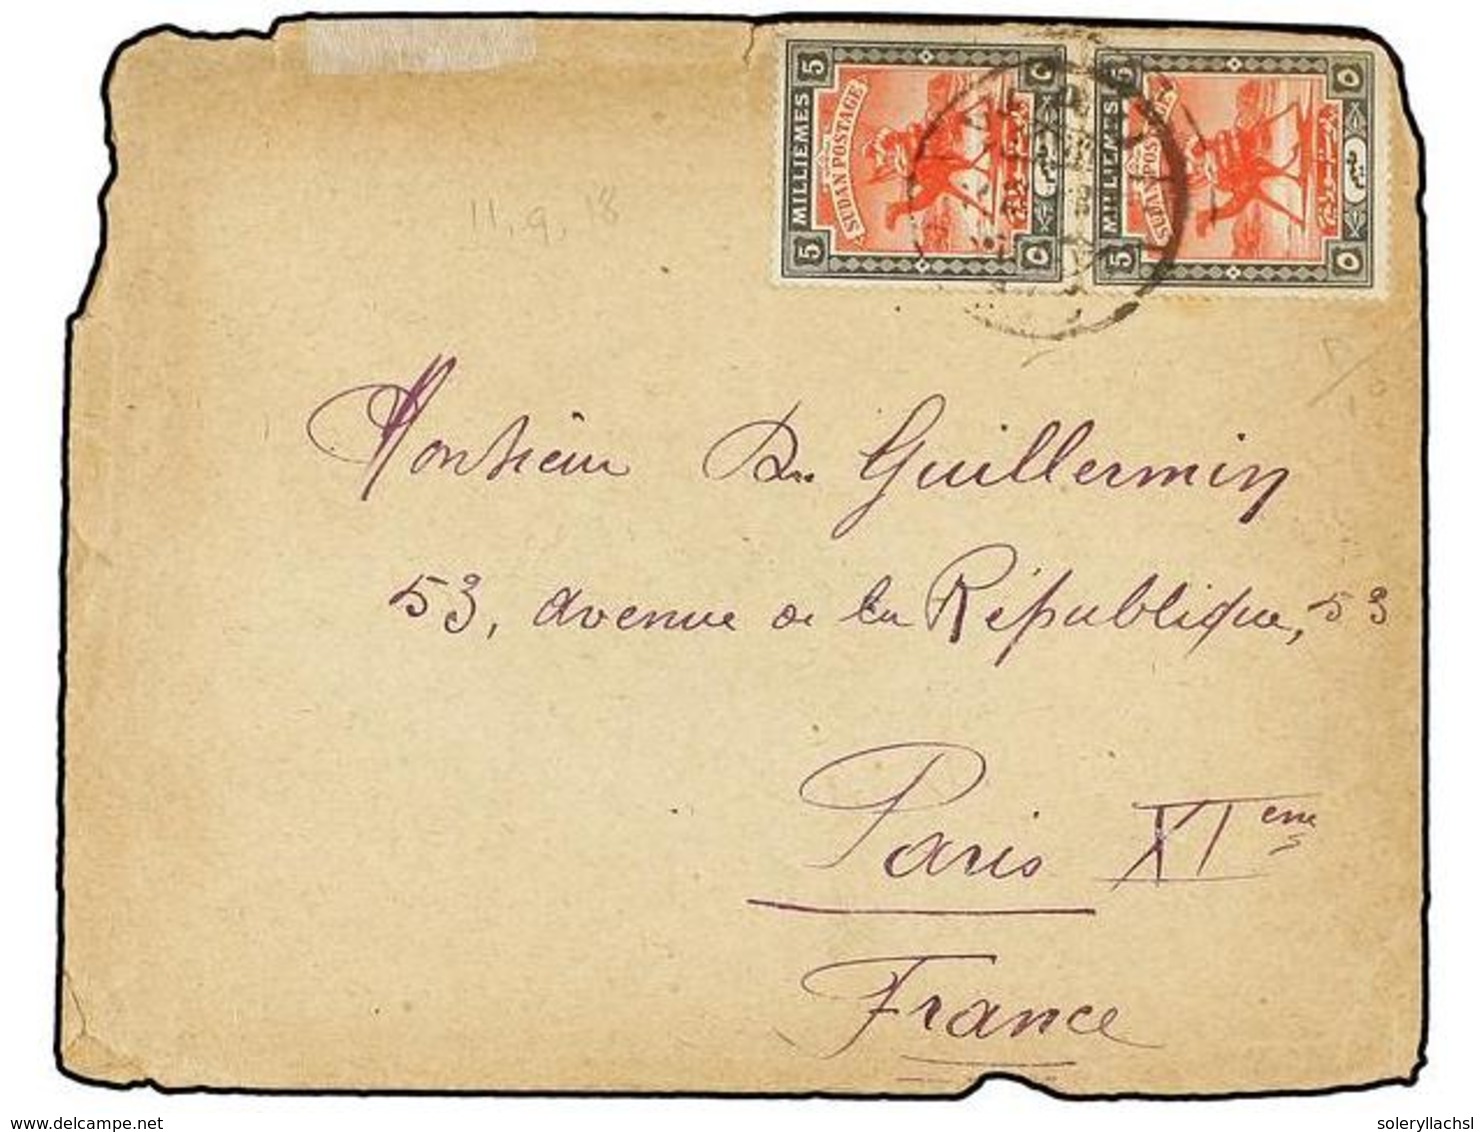 5 MILLIEMES 5
SUDAN POSTAGE
٥ ٥
5 MILLIEMES 5
SUDAN POSTAGE
٥ ٥
11.9.18
Monsieur Dr. Guillermin
53, avenue de la République, 53
Paris XIeme
France
soleryllachsl